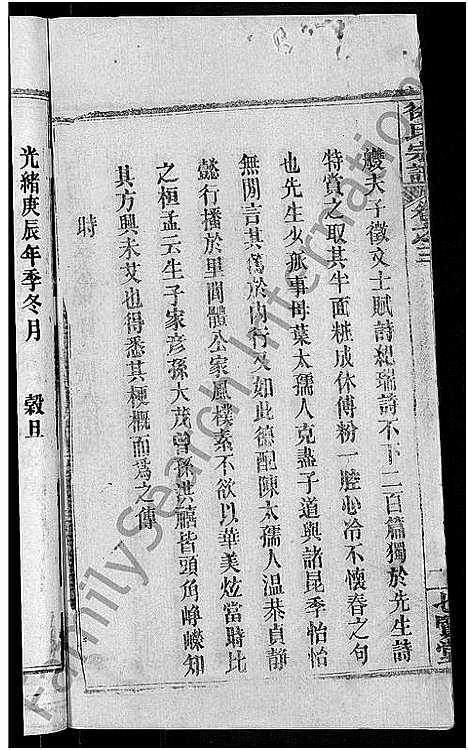 徐氏宗譜
七賢堂
艭夫子徵文士賦詩紀瑞詩不下二百篇獨於先生詩
特賞之取其半面粧成休傅粉一腔心冷不懷春之句
也先生少孤事母葉太孺人克盡子道與諸昆季怡怡
無閒言其爲於內行又如此德配陳太孺人溫恭貞靜
懿行播於里閭體公家風樸素不欲以華美炫當時比
之桓孟云生子家彥孫大茂曾孫洪禧皆頭角崢嶸知
其方興未艾也得悉其梗概而爲之傳
時
光緒庚辰年季冬月 穀旦
FamilySearch International